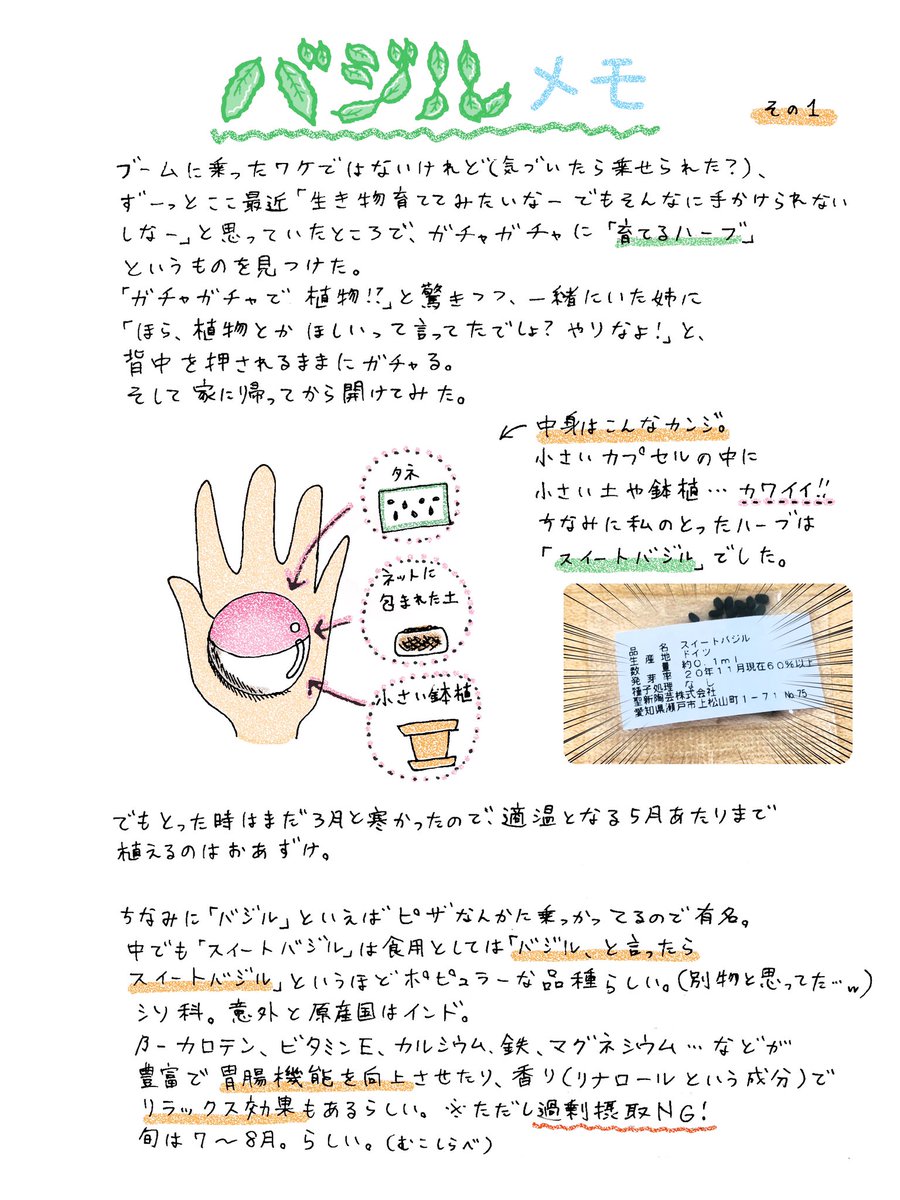 バジルメモ
その1
ブームに乗ったワケではないけれど(気づいたら乗せられた?)、
ずーっとここ最近「生き物育ててみたいなー でもそんなに手かけられない
しなー」と思っていたところで、ガチャガチャに「育てるハーブ」
というものを見つけた。
「ガチャガチャで 植物!?」と驚きつつ、一緒にいた姉に
「ほら、植物とか ほしいって言ってたでしょ? やりなよ!」と、
背中を押されるままにガチャる。
そして家に帰ってから開けてみた。
中身はこんなカンジ。
小さいカプセルの中に
小さい土や鉢植… カワイイ!!
ちなみに私のとったハーブは
「スイートバジル」でした。
タネ
ネットに
包まれた土
小さい鉢植
品 名 スイートバジル
生産地 ドイツ
数 量 約0.1ml
発芽率 20年11月現在60%以上
種子処理 なし
聖新陶芸株式会社
愛知県瀬戸市上松山町1-71 No.75
でもとった時はまだ3月と寒かったので、適温となる5月あたりまで
植えるのはおあずけ。
ちなみに「バジル」といえばピザなんかに乗っかってるので有名。
中でも「スイートバジル」は食用としては「バジル、と言ったら
スイートバジル」というほどポピュラーな品種らしい。(別物と思ってた…w)
シソ科。意外と原産国はインド。
β-カロテン、ビタミンE、カルシウム、鉄、マグネシウム…などが
豊富で胃腸機能を向上させたり、香り(リナロールという成分)で
リラックス効果もあるらしい。※ただし過剰摂取NG!
旬は7~8月。らしい。(むこしらべ)